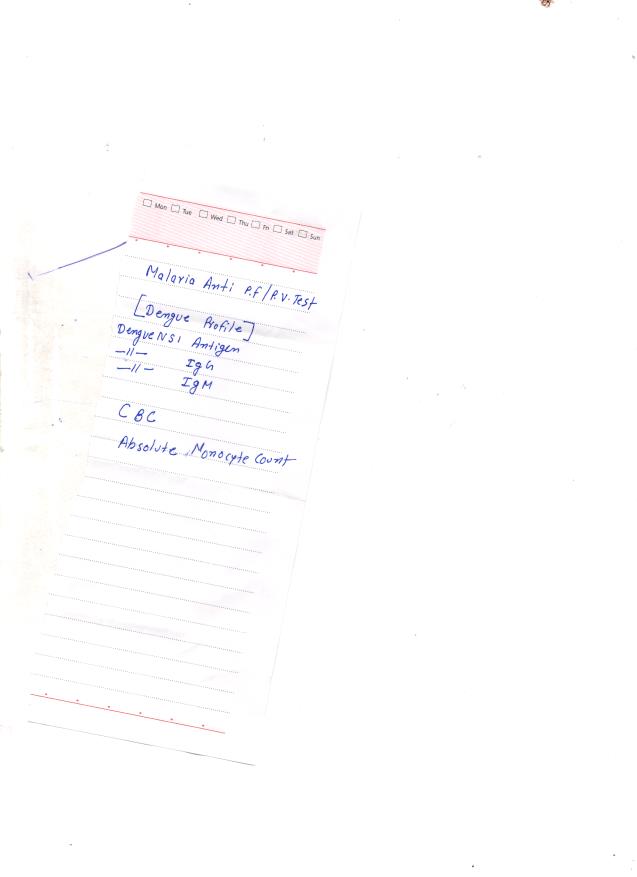 Mon Tue Wed Thu Fri Sat Sun
Malaria Anti P.f/P.V. Test
[Dengue Profile]
Dengue NS1 Antigen
—11— IgG
—11— IgM
CBC
Absolute Monocyte Count